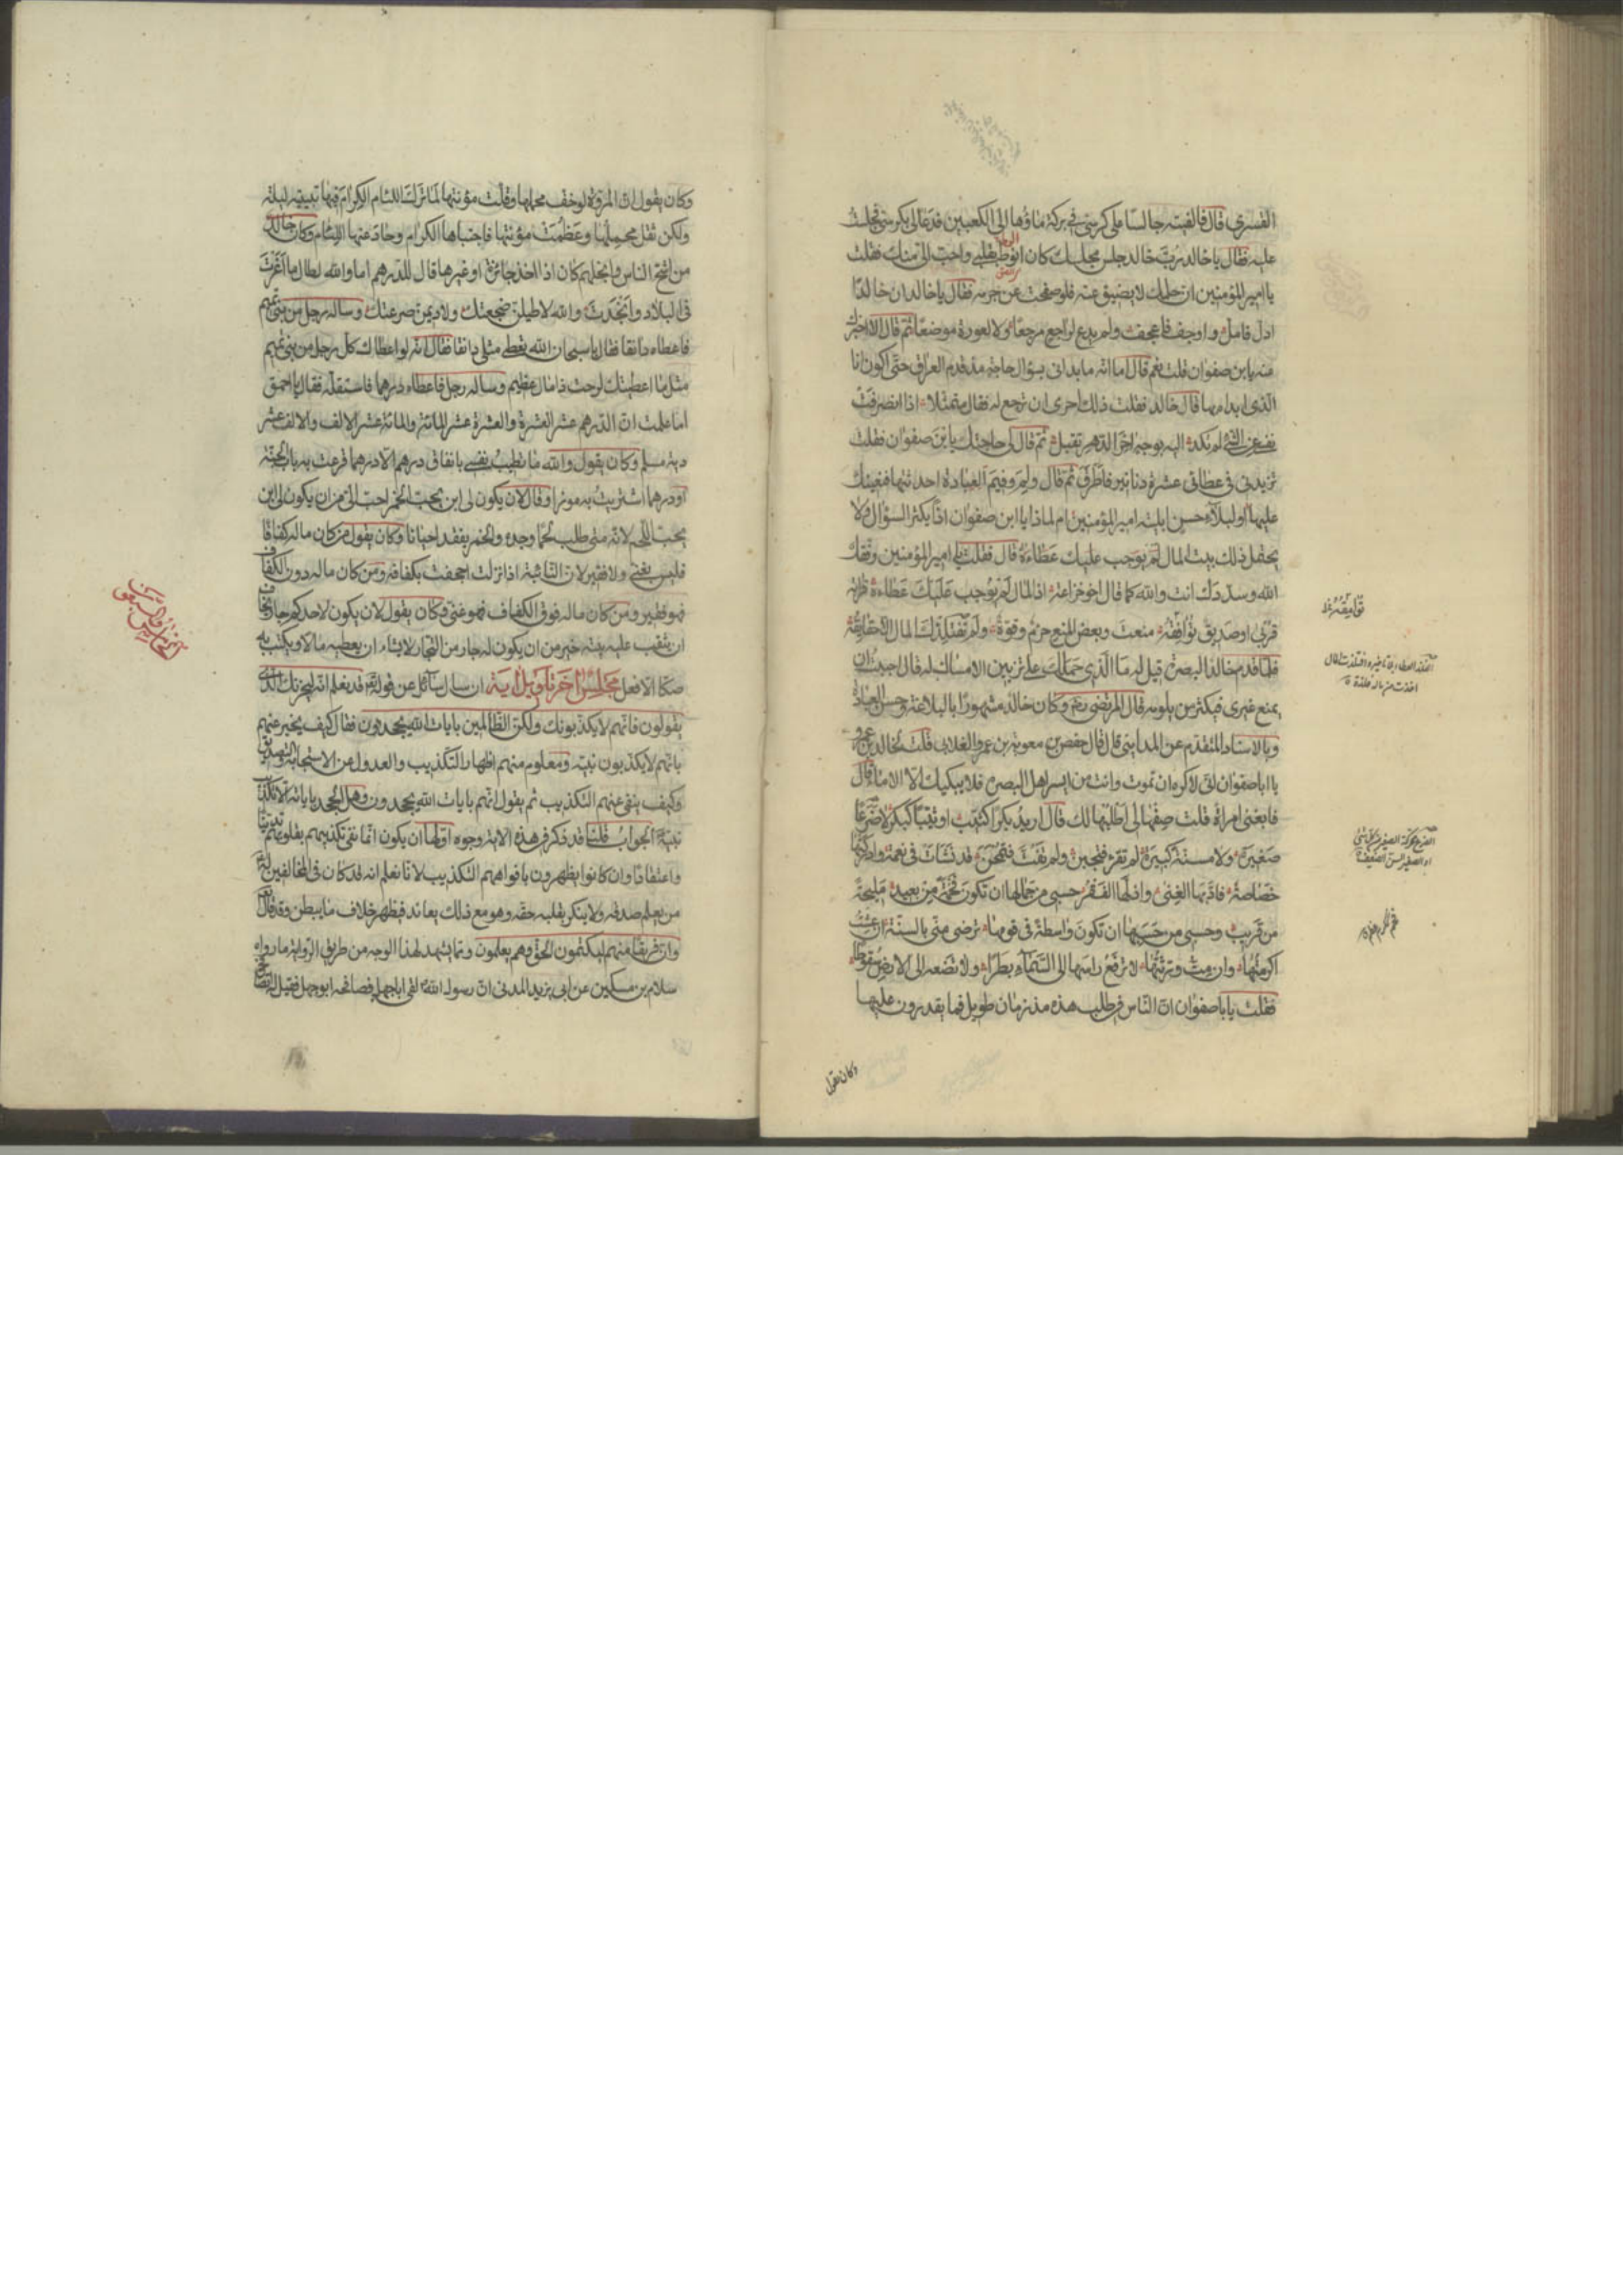 القسري قال فالفيته جالسا على كرسي في بركة ماؤها الى الكعبين فدعا لي بكرسي فجلست
عليه فقال يا خالد رب خالد جلس مجلسك كان الوط بقلبي واحب الي منك فقلت
يا امير المؤمنين ان حلمك لا يضيق عنه فلو صفحت عن جرمه فقال يا خالد ان خالدا
ادل فامل واوجف فاعجف ولم يدع لراجع مرجعا ولا لعودة موضعا ثم قال الا اخبرك
عنه يا بن صفوان قلت نعم قال اما انه ما بداني بسؤال حاجة مذ قدم العراق حتى اكون انا
الذي ابداه بها قال خالد فقلت ذلك احرى ان ترجع له فقال متمثلا اذا انصرفت
نفسي عن الشئ لم تكد اليه بوجه اخر الدهر تقبل ثم قال لي حاجتك يا بن صفوان فقلت
تزيدني في عطائي عشرة دنانير فاطرق ثم قال ولم وفيم العبادة احدثتها فنعينك
عليها او لبلاء حسن ابليته امير المؤمنين ام لماذا يا ابن صفوان اذا يكثر السؤال ولا
يحتمل ذلك بيت المال قال فقلت يا امير المؤمنين وفقك
الله وسددك انت والله كما قال اخو خزاعة اذا المال لم يوجب عليك عطاءه قرابة
قربى او صديق توافقه منعت وبعض المنع حزم وقوة ولم يفتلذك المال الا حقايقه
فلما قدم خالد البصرة قيل له ما الذي حملك على تزيين الامساك له قال احببت ان
يمنع غيري فيكثر من يلومه قال المرتضى رضه وكان خالد مشهورا بالبلاغة وحسن العبارة
وبالاسناد المتقدم عن المدايني قال قال حفص بن معوية بن عمرو الغلابي قلت لخالد
يا ابا صفوان اني لاكره ان تموت وانت من ايسر اهل البصرة فلا يبكيك الا الاماء قال
فابغني امراة قلت صفها لي اطلبها لك قال اريد بكرا كثيب او ثيبا كبكر لا ضرعا
صغيرة ولا مسنة كبيرة لم تقرء فتجبن ولم تفت فتمجن قد نشات في نعمة وادركتها
خصاصة فادبها الغنى واذلها الفقر حسبي من جمالها ان تكون فخمة من بعيد مليحة
من قريب وحسبي من حسبها ان تكون واسطة في قومها ترضى مني بالسنة ان عشت
اكرمتها وان مت ورثتها لا ترفع راسها الى السماء بطرا ولا تضعه الى الارض سقوطا
فقلت يا ابا صفوان ان الناس في طلب هذه مذ زمان طويل فما يقدرون عليها
وكان يقول
وكان يقول ان المروة لو خف محملها وقلت مؤنتها لما ترك اللئام الكرام فيها تبييت ليلة
ولكن ثقل محملها وعظمت مؤنتها فاجتباها الكرام وحاد عنها اللئام وكان خالد
من اشح الناس وابخلهم كان اذا اخذ جائزة او غيرها قال للدرهم اما والله لطال ما اغرت
في البلاد وانجدت والله لاطيلن ضجعتك ولاديمن صرعتك وساله رجل من بني تميم
فاعطاه دانقا فقال يا سبحان الله تعطي مثلي دانقا فقال له لو اعطاك كل رجل من بني تميم
مثل ما اعطيتك لرحت ذا مال عظيم وساله رجل فاعطاه درهما فاستقله فقال يا احمق
اما علمت ان الدرهم عشر العشرة والعشرة عشر المائة والمائة عشر الالف والالف عشر
دية مسلم وكان يقول والله ما تطيب نفسي بانفاق درهم الا درهما قرعت به باب الجنة
او درهما اشتريت به موزا وقال لان يكون لي ابن يحب الخمر احب الي من ان يكون لي ابن
يحب اللحم لانه متى طلب لحما وجده والخمر يفقد احيانا وكان يقول من كان ماله كفافا
فليس بغني ولا فقير لان النائبة اذا نزلت اجحفت بكفافه ومن كان ماله دون الكفاف
فهو فقير ومن كان ماله فوق الكفاف فهو غني وكان يقول لان يكون لاحدكم جار يخاف
ان ينقب عليه بيته خير من ان يكون له جار من التجار لا يشاء ان يعطيه مالا ويكتب به
صكا الا فعل مجلس اخر تاويل اية ان سال سائل عن قوله تع قد نعلم انه ليحزنك الذي
يقولون فانهم لا يكذبونك ولكن الظالمين بايات الله يجحدون فقال كيف يخبر عنهم
بانهم لا يكذبون نبيه ومعلوم منهم اظهار التكذيب والعدول عن الاستجابة والتصديق
وكيف ينفي عنهم التكذيب ثم يقول انهم بايات الله يجحدون وهل الجحد باياته الا تكذيب
نبيه الجواب قلنا قد ذكر في هذه الاية وجوه اولها ان يكون انما نفى تكذيبهم بقلوبهم تدينا
واعتقادا وان كانوا يظهرون بافواههم التكذيب لانا نعلم انه قد كان في المخالفين له
من يعلم صدقه ولا ينكر بقلبه حقه وهو مع ذلك يعاند فيظهر خلاف ما يبطن وقد قال تع
وان فريقا منهم ليكتمون الحق وهم يعلمون ومما يشهد لهذا الوجه من طريق الرواية ما رواه
سلام بن مسكين عن ابي يزيد المدني ان رسول الله لقي ابا جهل فصافحه ابو جهل فقيل له